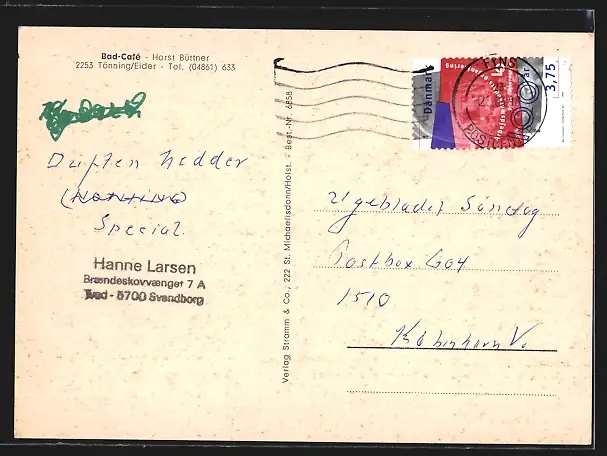 Bad-Café - Horst Büttner
2253 Tönning/Eider - Tel. (04861) 633
Danmark
3,75
FYNS
POSTCENTER
Duften hedder
Special
Hanne Larsen
Brændeskovvænget 7 A
Tved - 5700 Svendborg
Verlag Stramm & Co., 222 St. Michaelisdonn/Holst. - Best.-Nr. 6858
Ugebladet Søndag
Postbox 604
1510
København V.